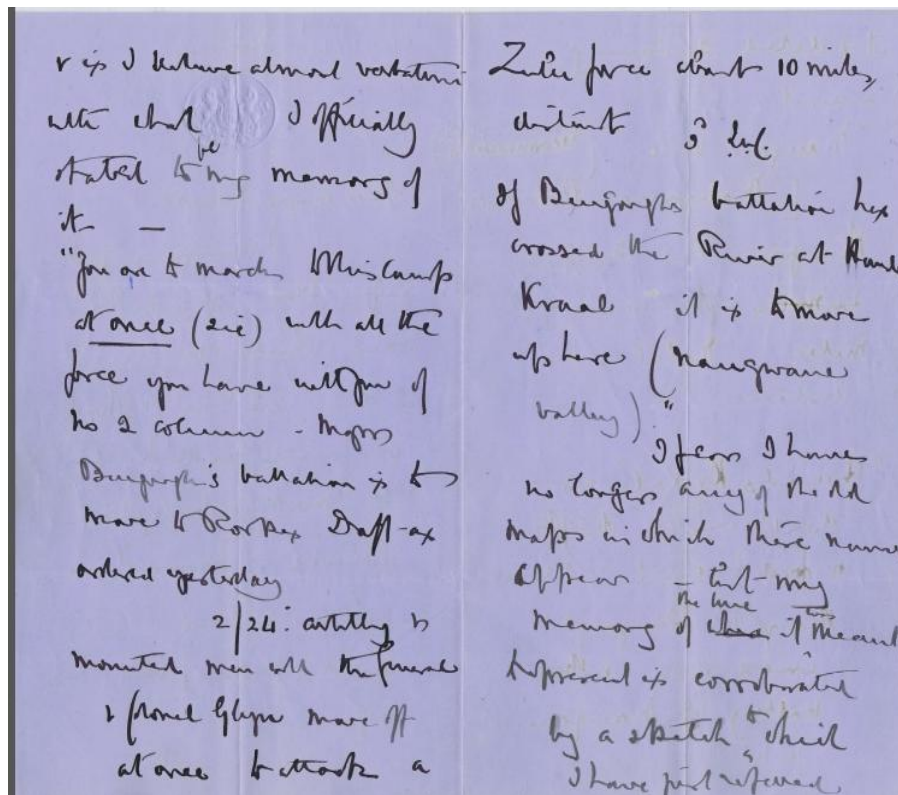 & is I believe almost verbatim
with what I officially
stated to be my memory of
it —
"You are to march to this camp
at once (sic) with all the
force you have with you of
No 2 column - Major
Bengough's battalion is to
move to Rorkes Draft - as
ordered yesterday
2/24: artillery &
mounted men with the General
& Colonel Glyn move off
at once to attack a
Zulu force about 10 miles
distant
of Bengough's battalion has
crossed the River at
Kraal it is to move
up here (Nangwane
valley)."
I fear I have
no longer any of the old
maps in which these names
appear - but my
memory of the line it meant
to represent is corroborated
by a sketch to which
I have just referred